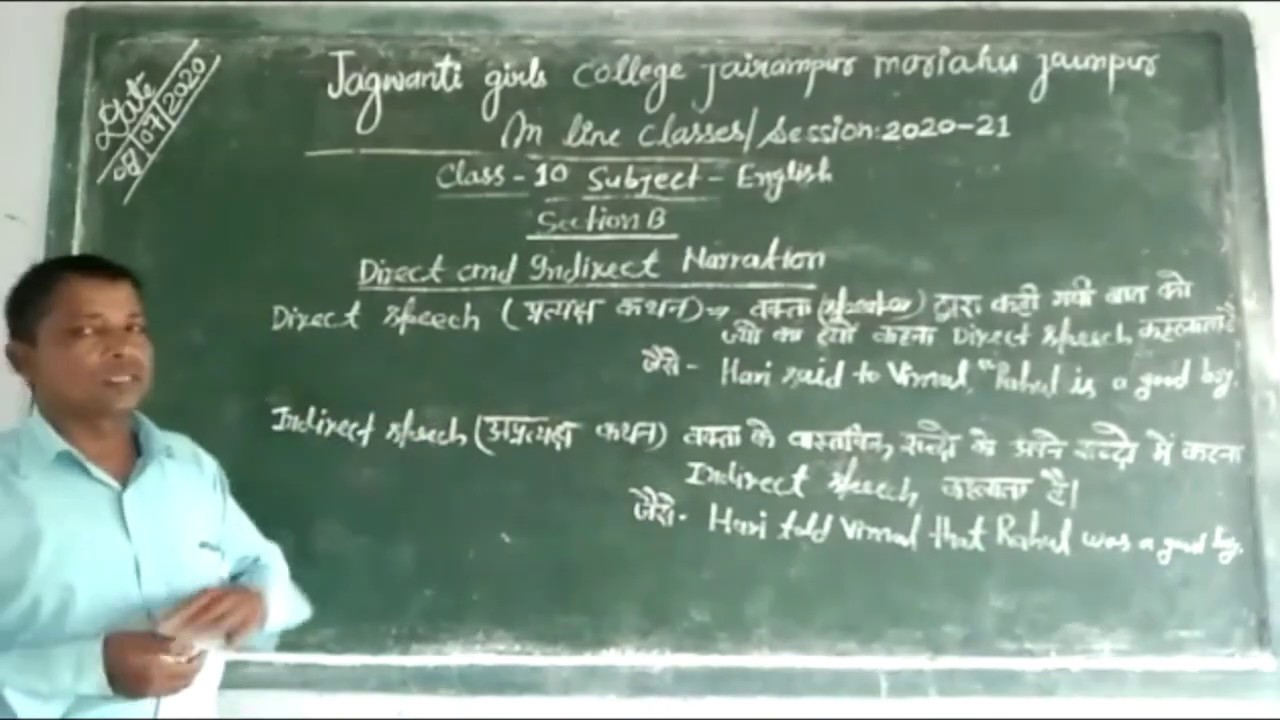 Date
08/07/2020
Jagwanti girls college jairampur moriahu jaunpur
On line classes/session:2020-21
Class-10 Subject-English
Section B
Direct and Indirect Narration
Direct speech (प्रत्यक्ष कथन)⇒ वक्ता (speaker) द्वारा कही गयी बात को
ज्यों का त्यों कहना Direct speech कहलाता है
जैसे- Hari said to Vimal, "Rahul is a good boy.
Indirect speech (अप्रत्यक्ष कथन) वक्ता के वास्तविक शब्दो को अपने शब्दो में कहना
Indirect speech कहलाता है।
जैसे- Hari told Vimal that Rahul was a good boy.